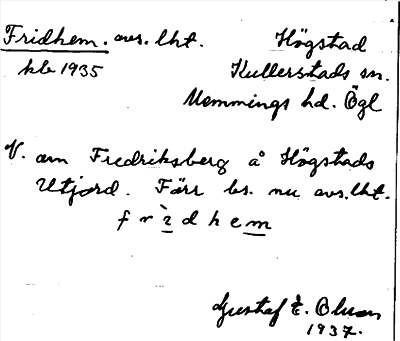 Fridhem. avs. lht. Högstad
kb 1935 Kullerstads sn.
Memmings hd. Ögl
V. om Fredriksberg å Högstads
Utjord. Förr bs. nu avs. lht.
f r ì d h e m
Gustaf E. Olson
1937.